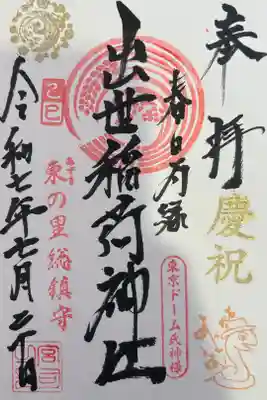 奉拝
慶祝
春日局縁
東京ドーム氏神様
出世稲荷神社
あずま
東の里総鎮守
令和七年七月二十日